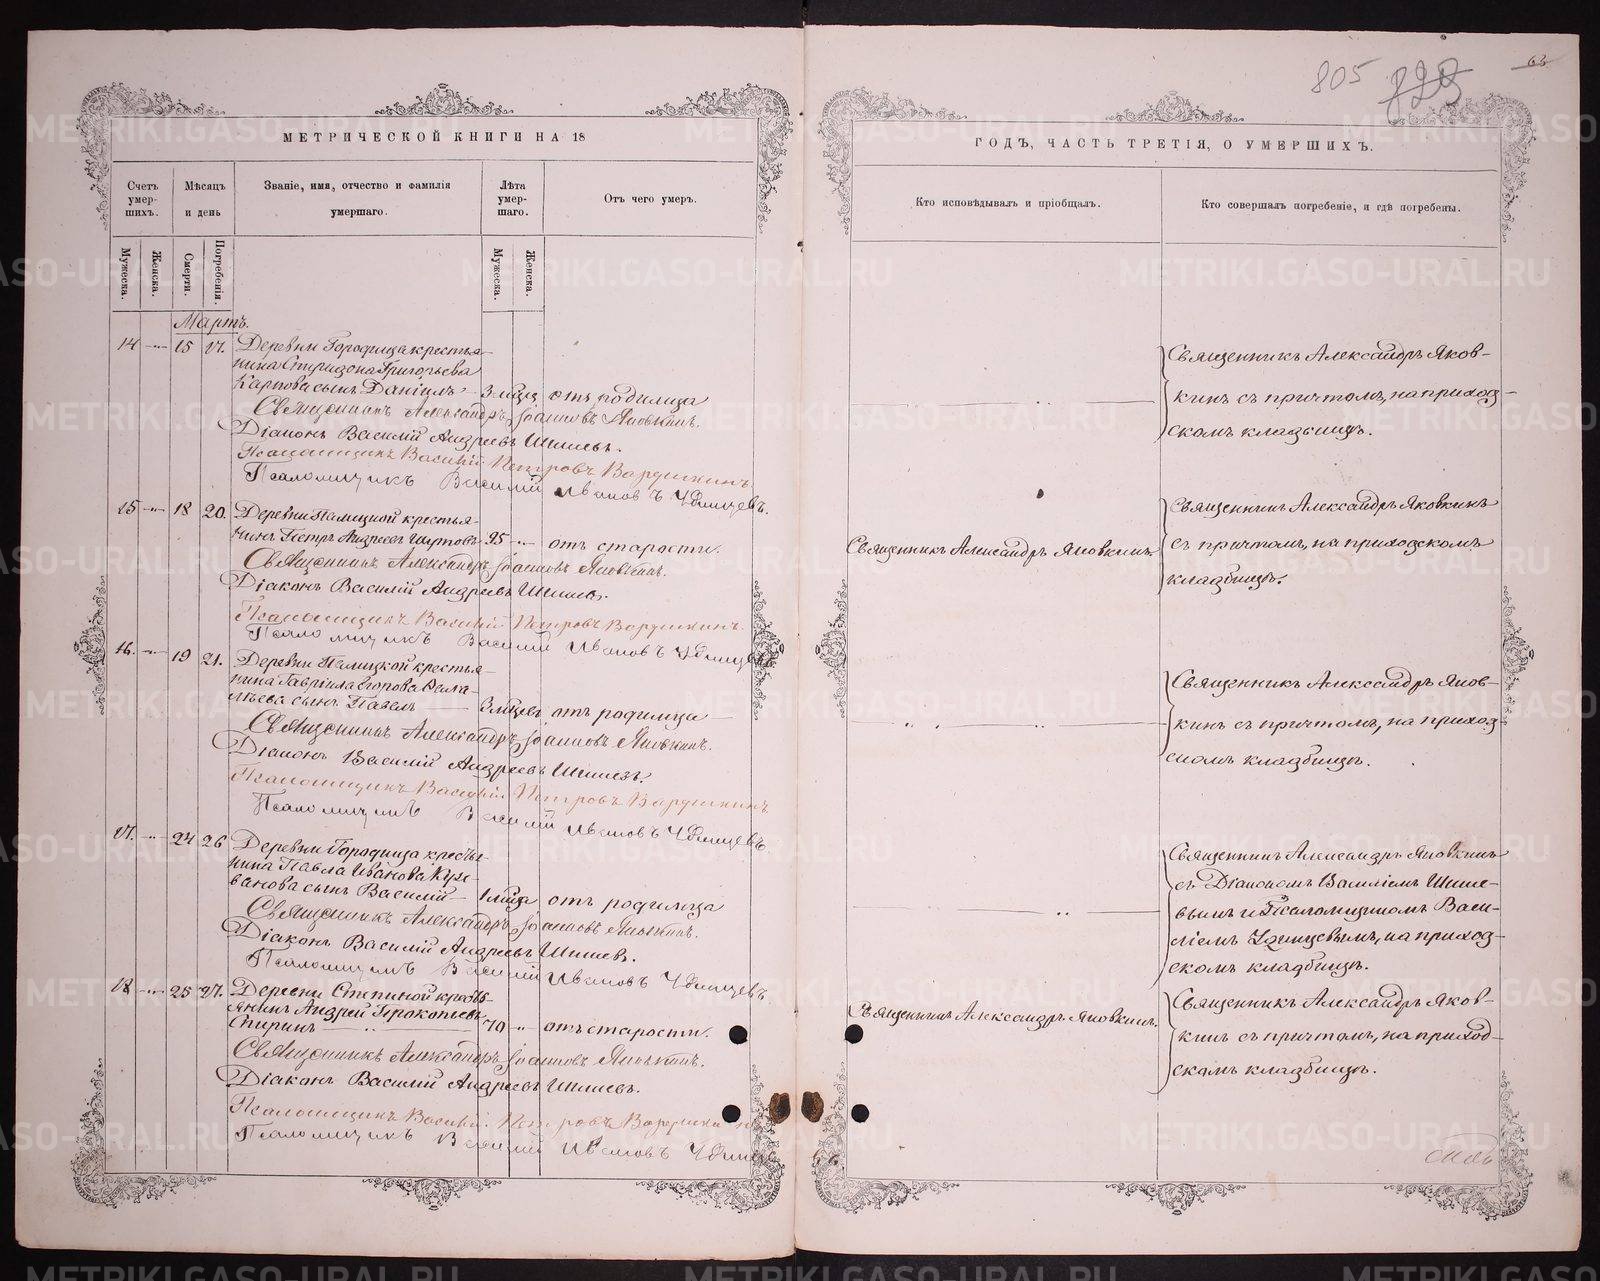 805 829
63
МЕТРИЧЕСКОЙ КНИГИ НА 18
ГОДЪ, ЧАСТЬ ТРЕТІЯ, О УМЕРШИХЪ.
Счетъ умер-шихъ.
Мѣсяцъ и день
Званіе, имя, отчество и фамилія умершаго.
Лѣта умер-шаго.
Отъ чего умеръ.
Кто исповѣдывалъ и пріобщалъ.
Кто совершалъ погребеніе, и гдѣ погребены.
Мужеска.
Женска.
Смерти.
Погребенія.
Мужеска.
Женска.
Мартъ.
14 -"- 15 17. Деревни Городища крестья-
нина Спиридона Григорьева
Карпова сынъ Даніилъ 3 мѣсяц отъ родимца
Священникъ Александръ Іоанновъ Яковкинъ.
Діаконъ Василій Андреевъ Шишевъ.
Псаломщикъ Василій Петровъ Вардинкинъ
Псаломщикъ Василій Ивановъ Удинцевъ.
Священникъ Александръ Яков-
кинъ съ причтомъ, на приход-
скомъ кладбищѣ.
15 -"- 18 20. Деревни Палицкой крестья-
нинъ Петръ Андреевъ 95 -"- отъ старости.
Священникъ Александръ Іоанновъ Яковкинъ.
Діаконъ Василій Андреевъ Шишевъ.
Псаломщикъ Василій Петровъ Вардинкинъ.
Псаломщикъ Василій Ивановъ Удинцевъ
Священникъ Александръ Яковкинъ.
Священникъ Александръ Яковкинъ
съ причтомъ, на приходскомъ
кладбищѣ.
16. -"- 19 21. Деревни Палицкой крестья-
нина Гавріила Егорова
сынъ Павелъ 3 мѣсяц отъ родимца
Священникъ Александръ Іоанновъ Яковкинъ.
Діаконъ Василій Андреевъ Шишевъ.
Псаломщикъ Василій Петровъ Вардинкинъ
Псаломщикъ Василій Ивановъ Удинцевъ
Священникъ Александръ Яков-
кинъ съ причтомъ, на приход-
скомъ кладбищѣ.
17. -"- 24 26 Деревни Городища крестья-
нина Павла Иванова
сынъ Василій 1 мѣсяца отъ родимца
Священникъ Александръ Іоанновъ Яковкинъ.
Діаконъ Василій Андреевъ Шишевъ.
Псаломщикъ Василій Ивановъ Удинцевъ.
Священникъ Александръ Яковкинъ
съ Діакономъ Василіемъ Шише-
вымъ и Псаломщикомъ Васи-
ліемъ Удинцевымъ, на приход-
скомъ кладбищѣ.
18 -"- 25 27. Деревни Степиной кресть-
янинъ Андрей Прокопьевъ
Спиринъ 70 " отъ старости.
Священникъ Александръ Іоанновъ Яковкинъ.
Діаконъ Василій Андреевъ Шишевъ.
Псаломщикъ Василій Петровъ Вардинкинъ
Псаломщикъ Василій Ивановъ Удинцевъ
Священникъ Александръ Яковкинъ.
Священникъ Александръ Яков-
кинъ съ причтомъ, на приход-
скомъ кладбищѣ.
METRIKI.GASO-URAL.RU